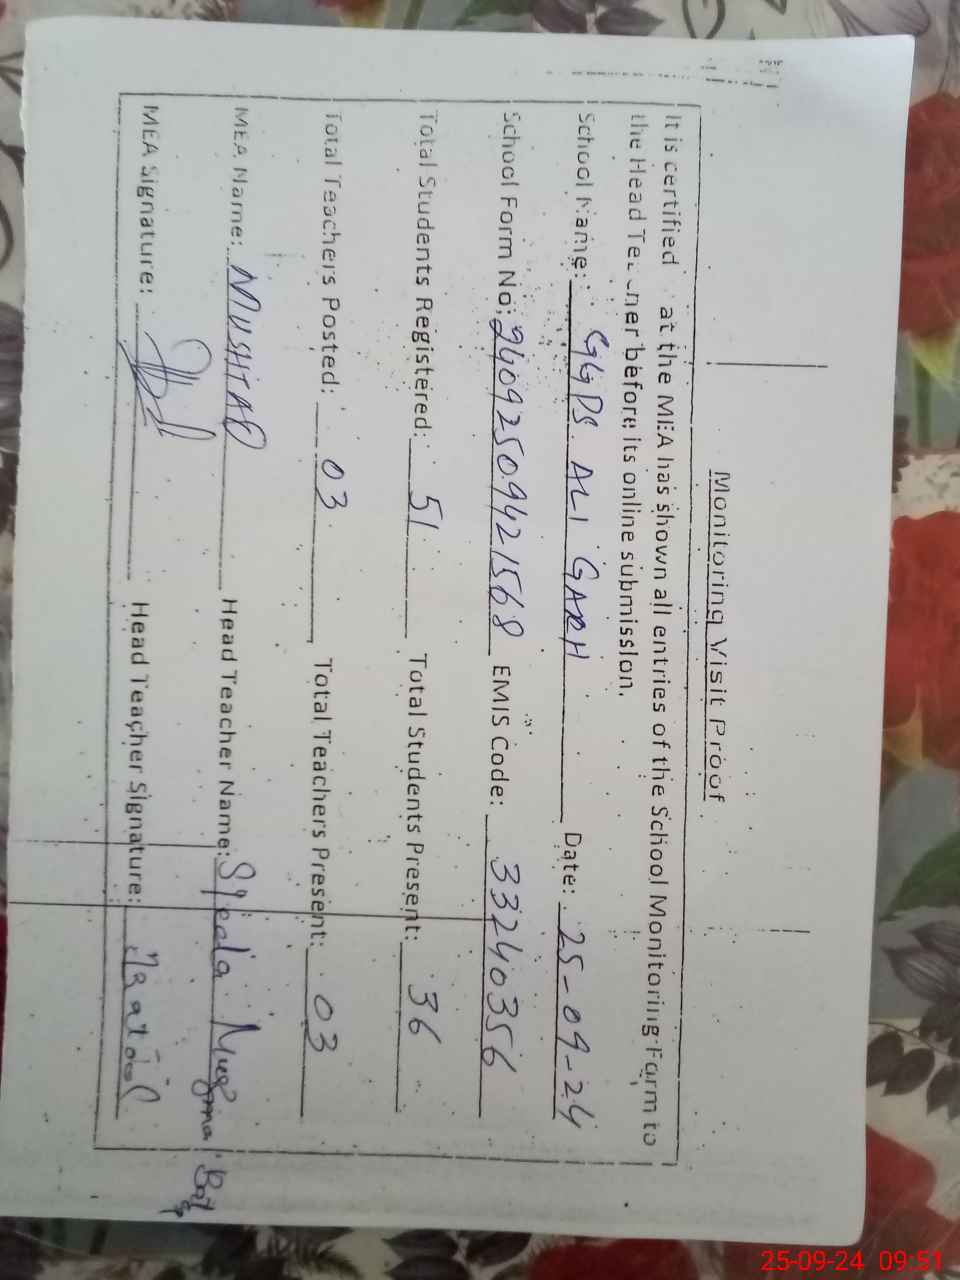 Monitoring Visit Proof
It is certified at the MEA has shown all entries of the School Monitoring Form to
the Head Te ner before its online submission.
School Name: GGPS ALI GARH Date: 25-09-24
School Form No: 24092509421568 EMIS Code: 33240356
Total Students Registered: 51 Total Students Present: 36
Total Teachers Posted: 03 Total Teachers Present: 03
MEA Name: MUSHTAQ Head Teacher Name: Syeda
MEA Signature: Head Teacher Signature:
25-09-24 09:51